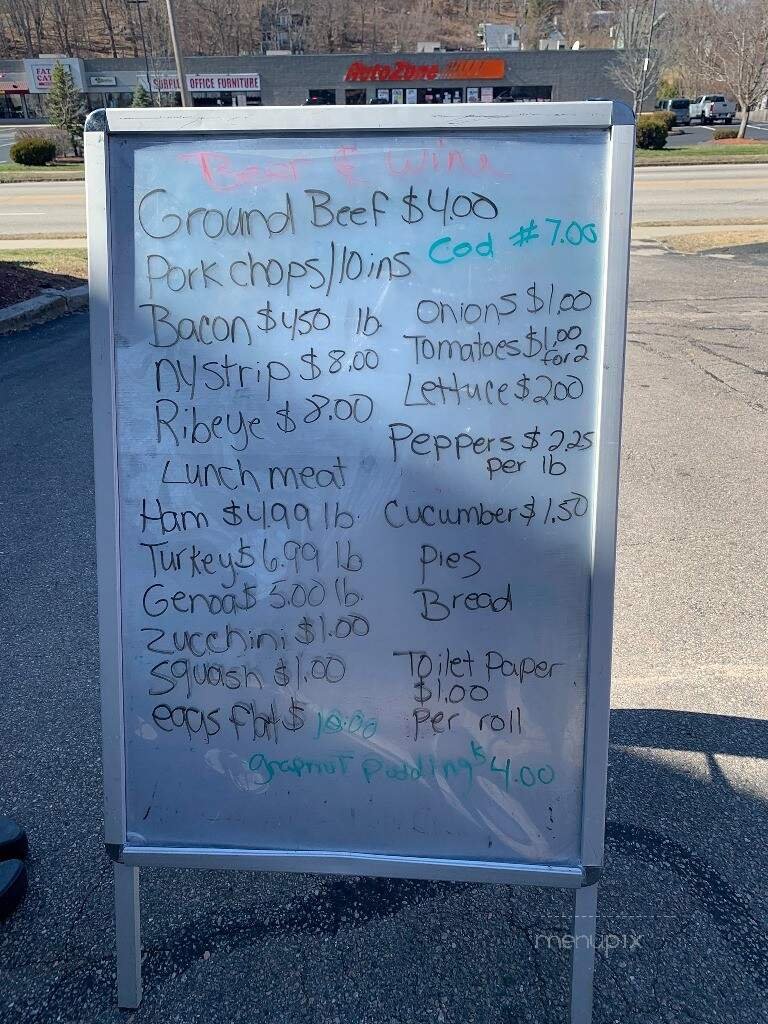 FAT
CAT
SURPLUS OFFICE FURNITURE
AutoZone
Beer & Wine
Ground Beef $4.00
Cod #7.00
Pork chops/10 ins
Bacon $450 lb
ny strip $8.00
Ribeye $8.00
Lunch meat
Ham $4.99 lb.
Turkey $6.99 lb
Genoa $5.00 lb.
Zucchini $1.00
Squash $1.00
eggs flat $ 10.00
Onions $1.00
Tomatoes $1.00
for 2
Lettuce $200
Peppers $2.25
per lb
Cucumber $1.50
Pies
Bread
Toilet Paper
$1.00
per roll
grapnut pudding $4.00
menupix